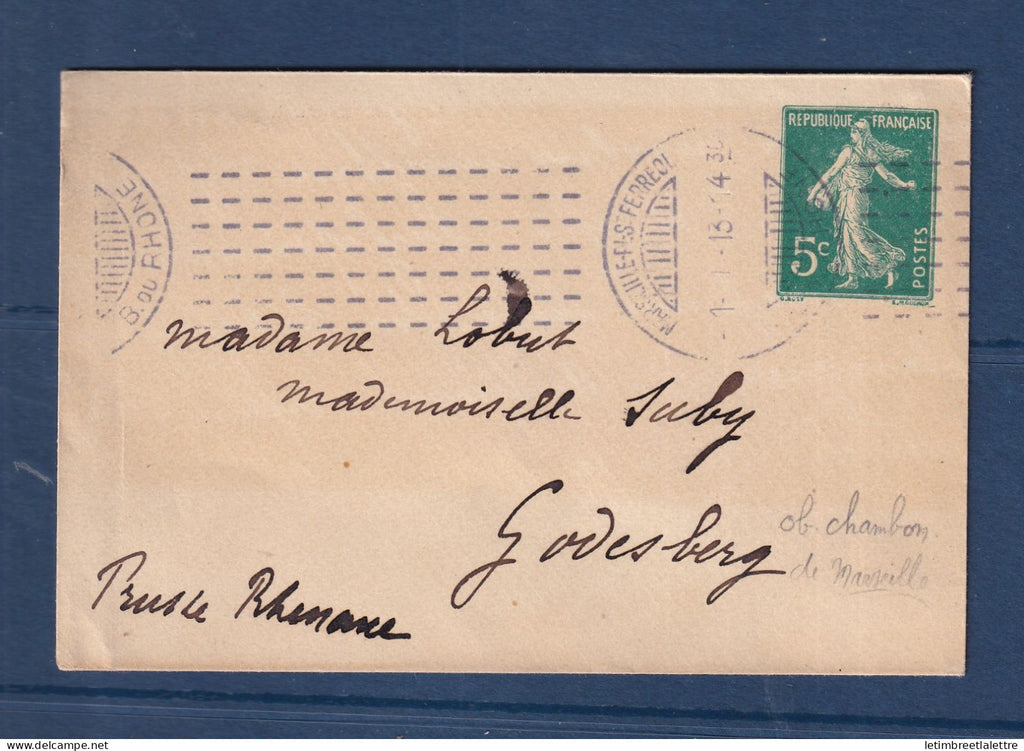 REPUBLIQUE FRANÇAISE
5c
POSTES
B. DU RHONE
1 - 1 - 13 - 14 30
madame
mademoiselle Suby
Godesberg
Prusse Rhenane
ob. chambon.
de Marseille
www.delcampe.net
letimbreetlalettre